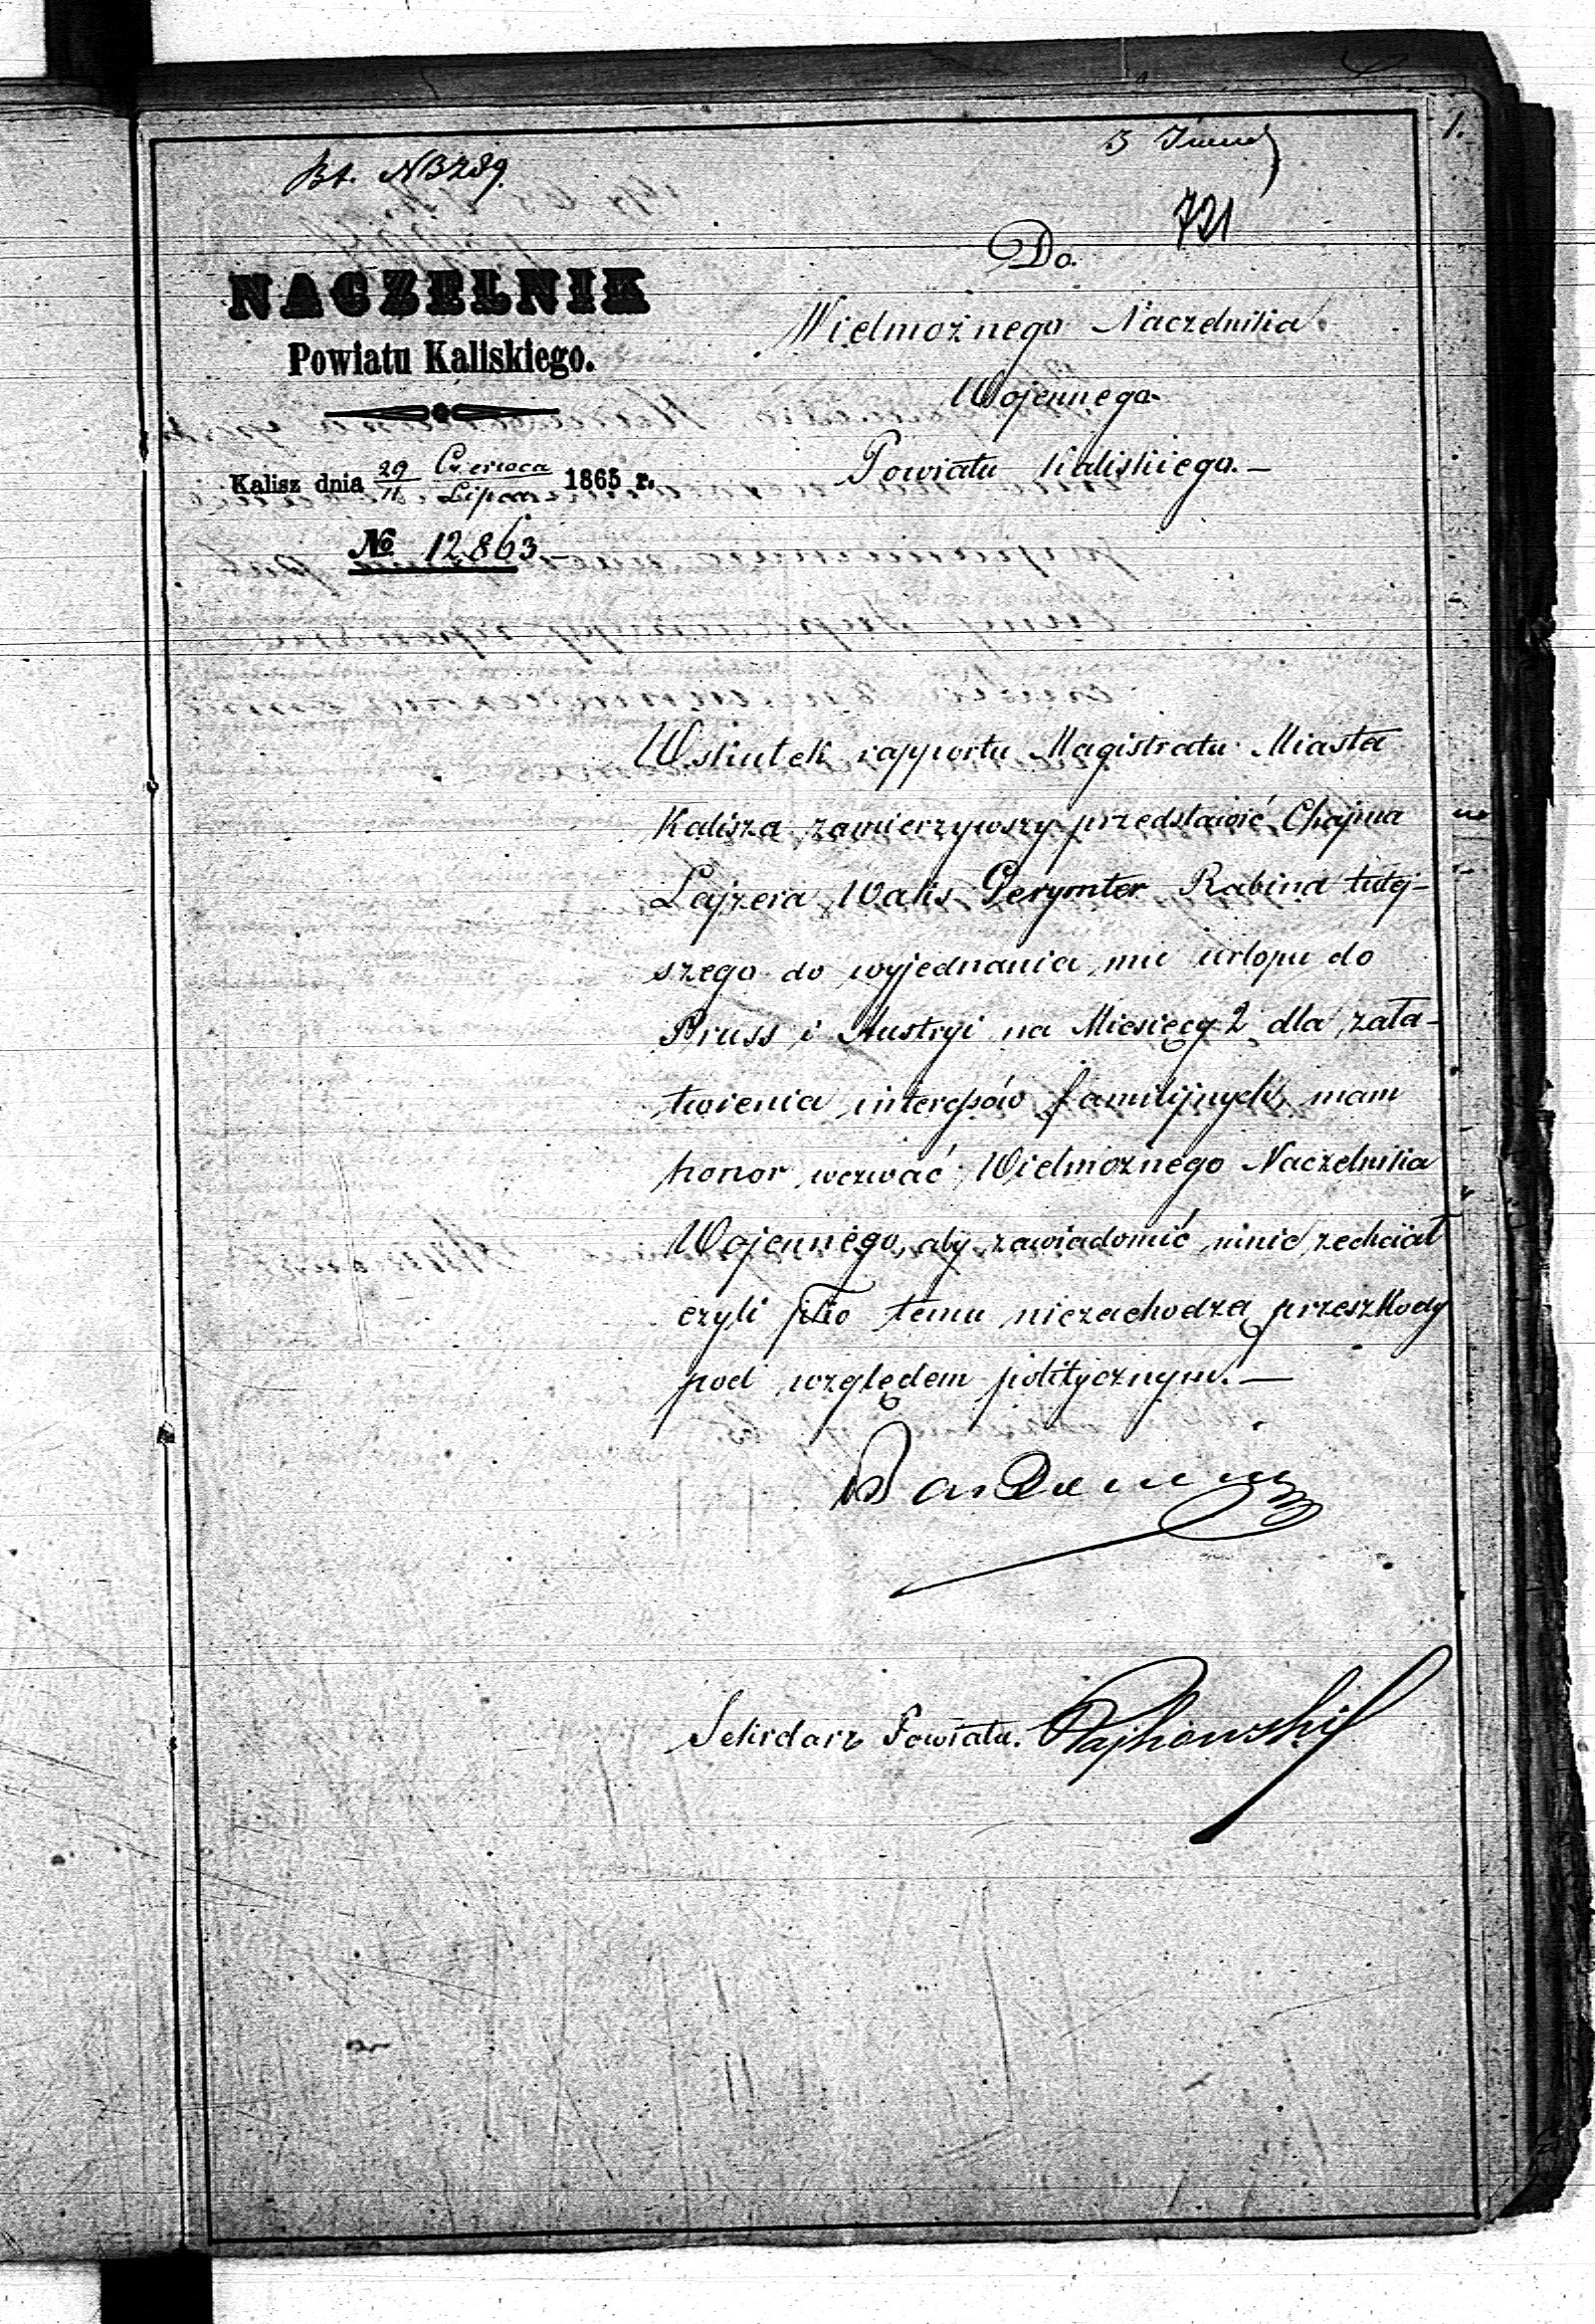 1.
721
NACZELNIK
Powiatu Kaliskiego.
Kalisz dnia 29/11 Czerwca/Lipca 1865 r.
№ 12863
Do
Wielmożnego Naczelnika
Wojennego
Powiatu Kaliskiego.—
Wskutek rapportu Magistratu Miasta
Kalisza zamierzywszy przedstawić Chajma
Lajzera Waks Perymter Rabina tutej-
szego do wyjednania mu urlopu do
Pruss i Austryi na Miesięcy 2 dla zała-
twienia interessów familijnych, mam
honor wezwać Wielmożnego Naczelnika
Wojennego, aby zawiadomić mnie zechciał
czyli temu niezachodzą przeszkody
pod względem politycznym.—
Sekretarz Powiatu. Rajkowski